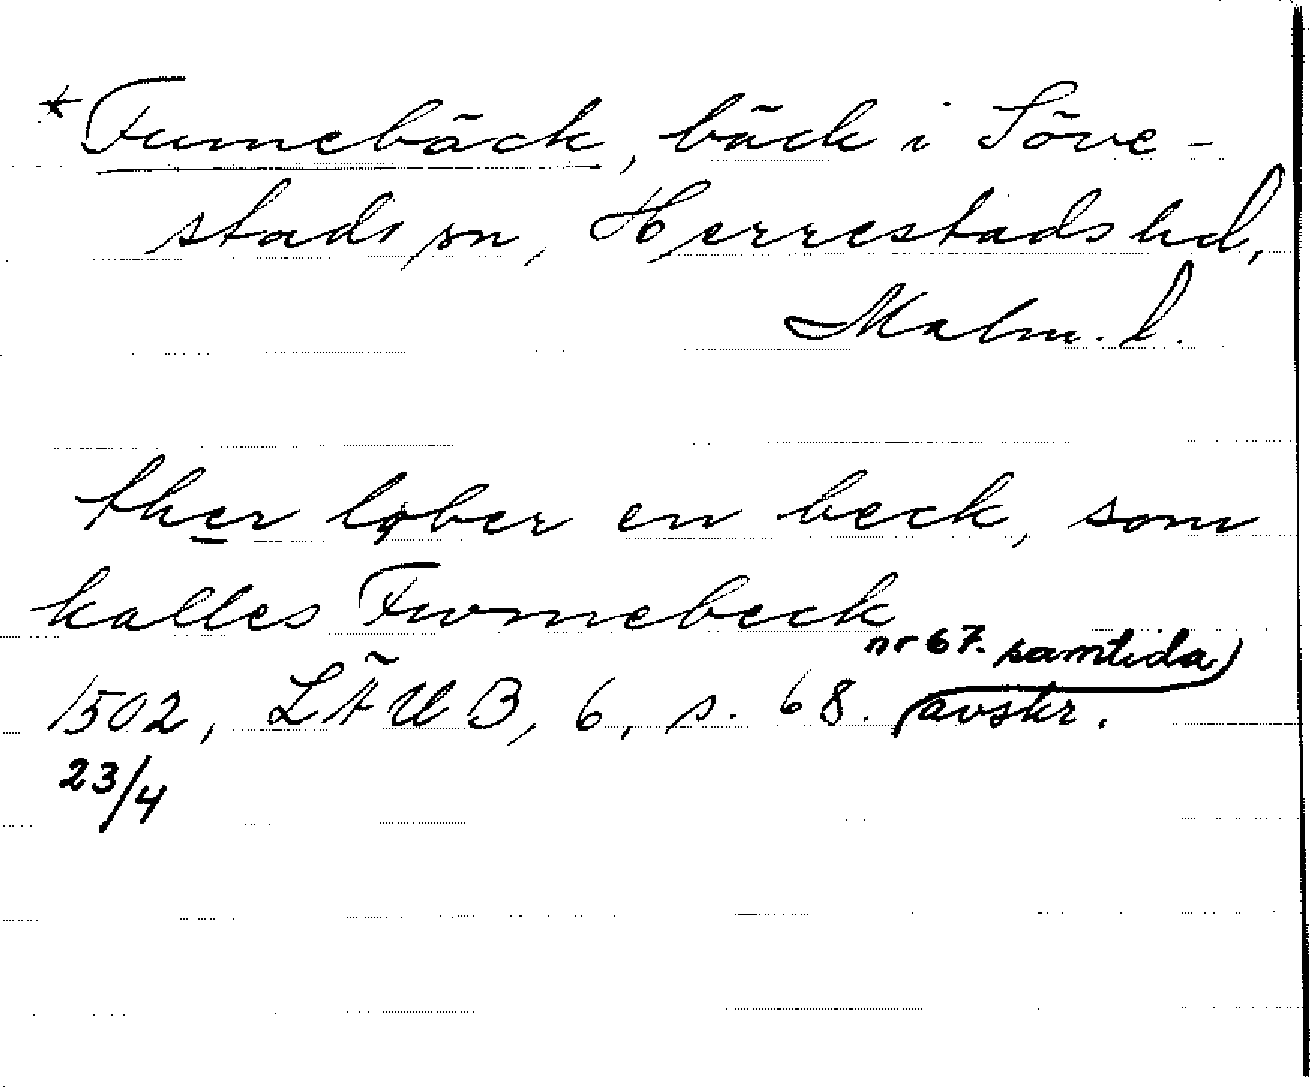 *Fumebäck, bäck i Söve-
stads sn, Herrestads hd,
Malm. l.
ther løber en beck, som
kalles Fwmebeck
nr 67. samtida
1502, LÄUB, 6, s. 68. avskr.
23/4